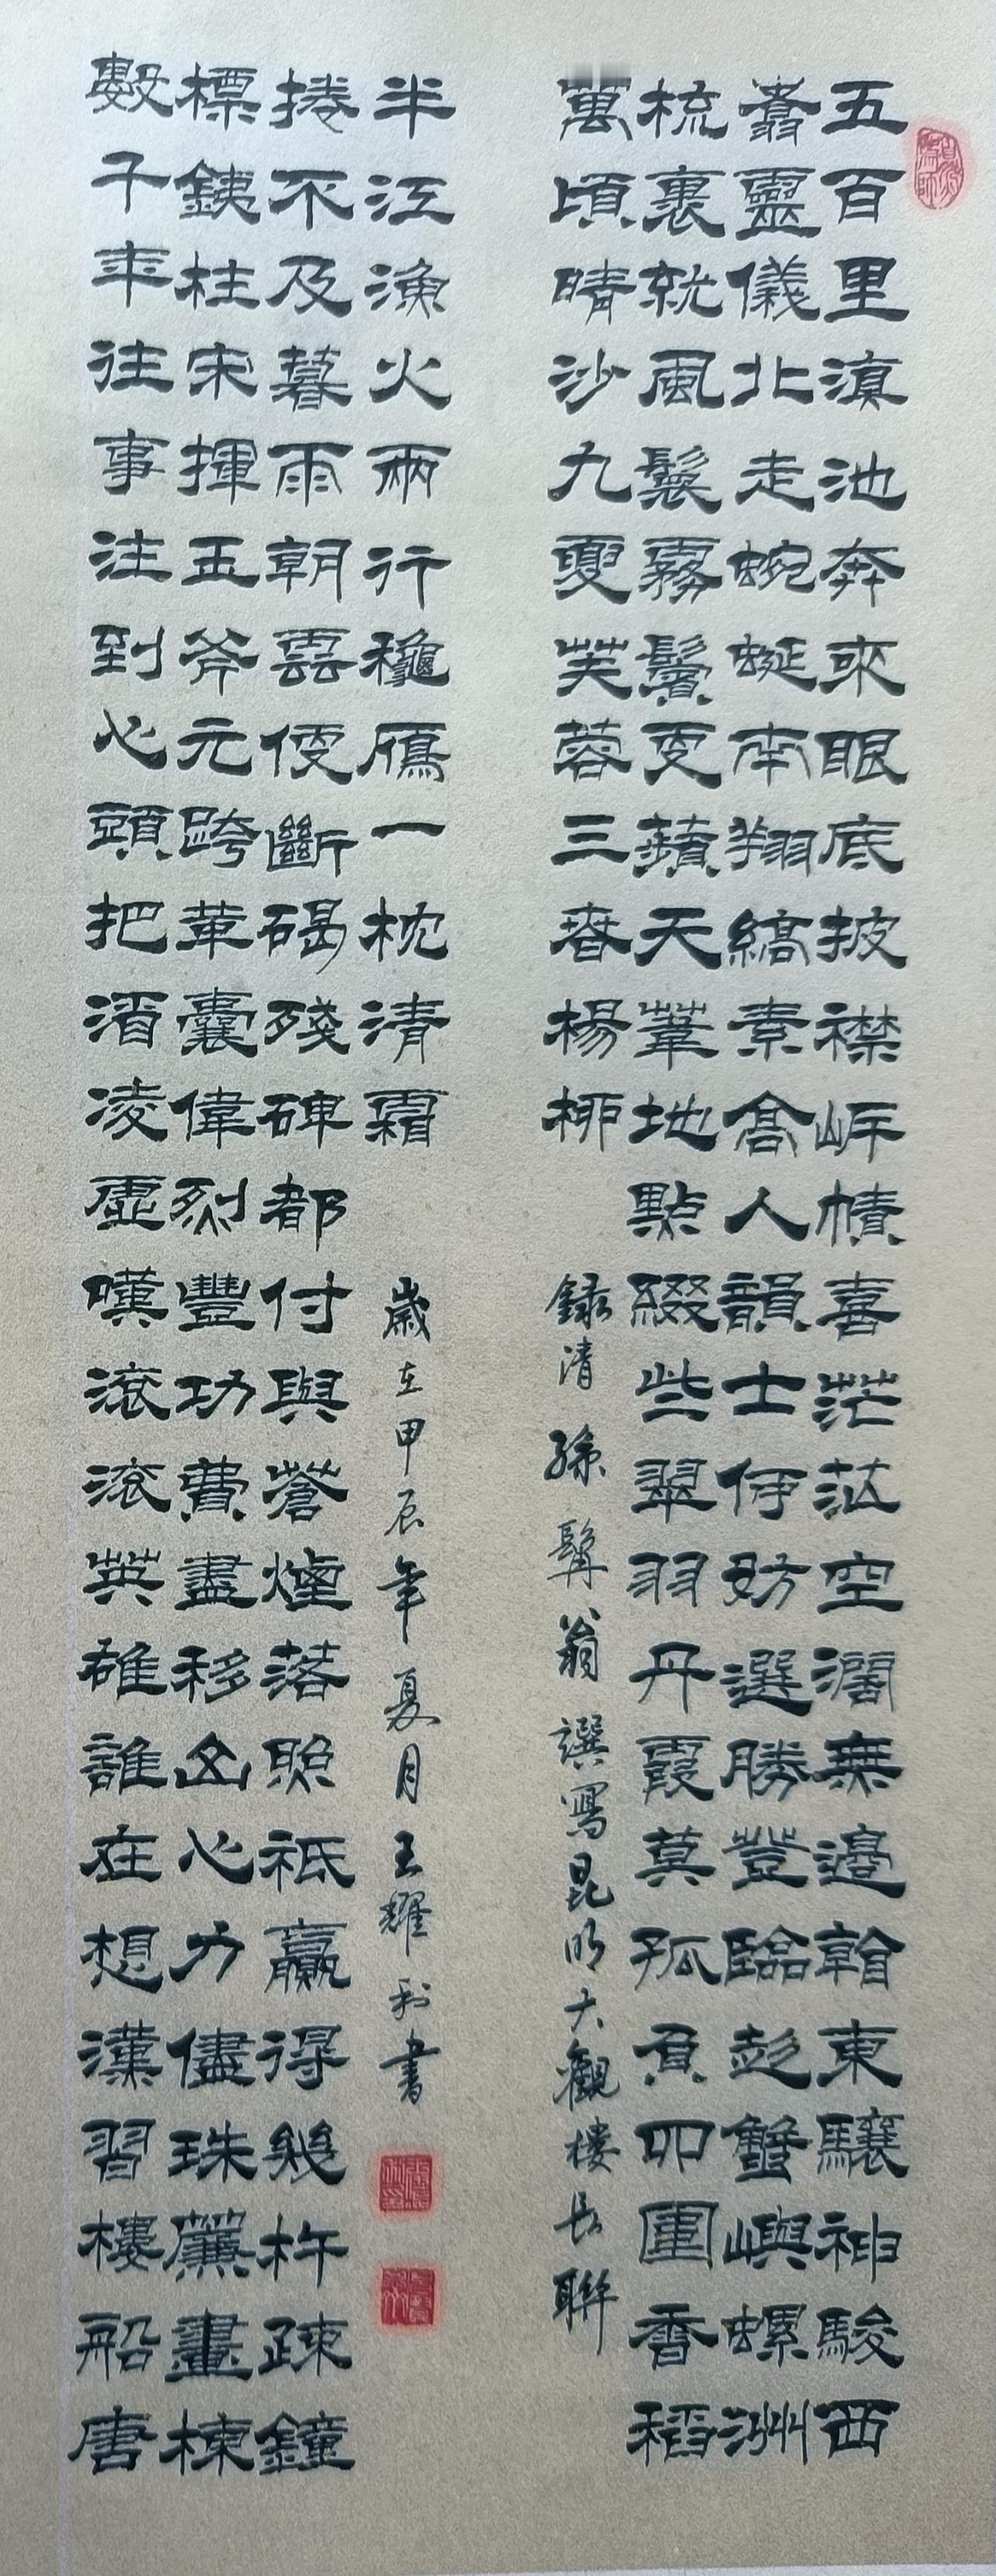 五百里滇池奔來眼底披襟岸幘喜茫茫空濶無邊看東驤神駿西
翥靈儀北走蜿蜒南翔縞素高人韻士何妨選勝登臨趁蟹嶼螺洲
梳裹就風鬟霧鬢更蘋天葦地點綴些翠羽丹霞莫孤負四圍香稻
萬頃晴沙九夏芙蓉三春楊柳
錄清孫髯翁譔寫昆明大觀樓長聯
數千年往事注到心頭把酒凌虛嘆滾滾英雄誰在想漢習樓船唐
標鐵柱宋揮玉斧元跨革囊偉烈豐功費盡移山心力儘珠簾畫棟
捲不及暮雨朝雲便斷碣殘碑都付與蒼煙落照祇贏得幾杵疎鐘
半江漁火兩行龝鴈一枕清霜
歲在甲辰年夏月王耀利書